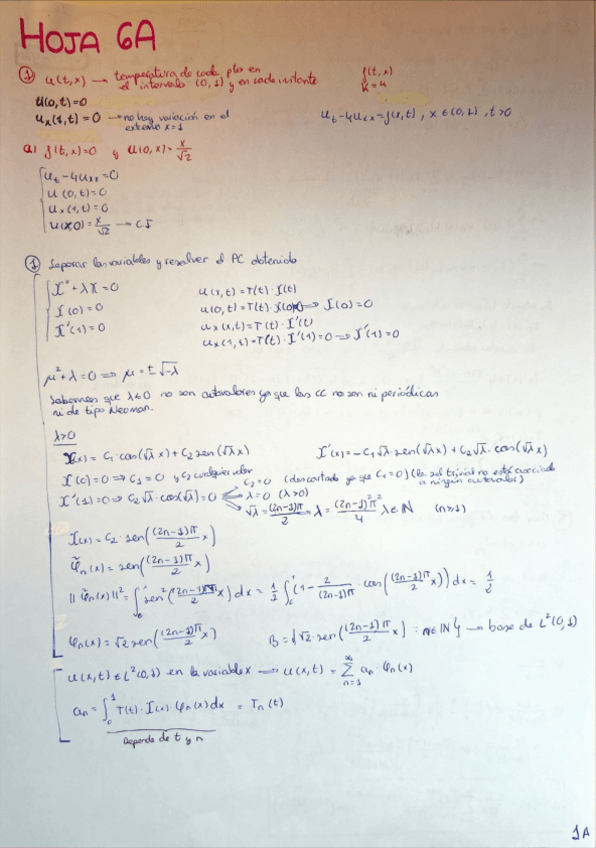 HOJA 6A
① u(t,x) → temperatura de cada pto en el intervalo (0,1) y en cada instante
f(t,x)
k=4
u(0,t)=0
u_x(1,t)=0 → no hay variación en el extremo x=1
u_t-4u_xx=f(x,t), x∈(0,1), t>0
a) f(t,x)=0 y u(0,x)=x/√2
u_t-4u_xx=0
u(0,t)=0
u_x(1,t)=0
u(x,0)=x/√2 → CI
① Separar las variables y resolver el PC obtenido
X''+λX=0
X(0)=0
X'(1)=0
u(x,t)=T(t)·X(t)
u(0,t)=T(t)·X(0) ⇒ X(0)=0
u_x(x,t)=T(t)·X'(t)
u_x(1,t)=T(t)·X'(1)=0 ⇒ X'(1)=0
μ²+λ=0 ⇒ μ=±√-λ
Sabemos que λ≤0 no son autovalores ya que las CC no son ni periódicas
ni de tipo Neoman.
λ>0
X(x)=C₁·cos(√λx)+C₂sen(√λx)
X'(x)=-C₁√λ·sen(√λx)+C₂√λ·cos(√λx)
X(0)=0 ⇒ C₁=0 y C₂ cualquier valor
X'(1)=0 ⇒ C₂√λ·cos(√λ)=0
C₂=0 (descartado ya que C₁=0) (la sol trivial no está asociada a ningún autovalor)
λ=0 (λ>0)
√λ=(2n-1)π/2 ⇒ λ=(2n-1)²π²/4 λ∈ℕ (n≥1)
X(x)=C₂·sen((2n-1)π/2 x)
φ̃_n(x)=sen((2n-1)π/2 x)
||φ̃_n(x)||²=∫₀¹sen²((2n-1)π/2 x)dx=1/2∫₀¹(1-2/(2n-1)π·cos((2n-1)π/2 x))dx=1/2
φ_n(x)=√2sen((2n-1)π/2 x)
B={√2·sen((2n-1)π/2 x):n∈ℕ} → base de L²(0,1)
u(x,t)∈L²(0,1) en la variable x → u(x,t)=∑_{n=1}^∞ a_n·φ_n(x)
a_n=∫₀¹T(t)·X(x)·φ_n(x)dx=T_n(t)
Depende de t y n
1A